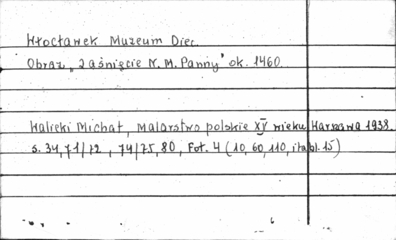 Włocławek Muzeum Diec.
Obraz „Zaśnięcie N. M. Panny" ok. 1460.
Walicki Michał, Malarstwo polskie XV wieku Warszawa 1938.
s. 34, 71/72, 74/75, 80, Fot. 4 (10, 60, 110, i tabl. 15)